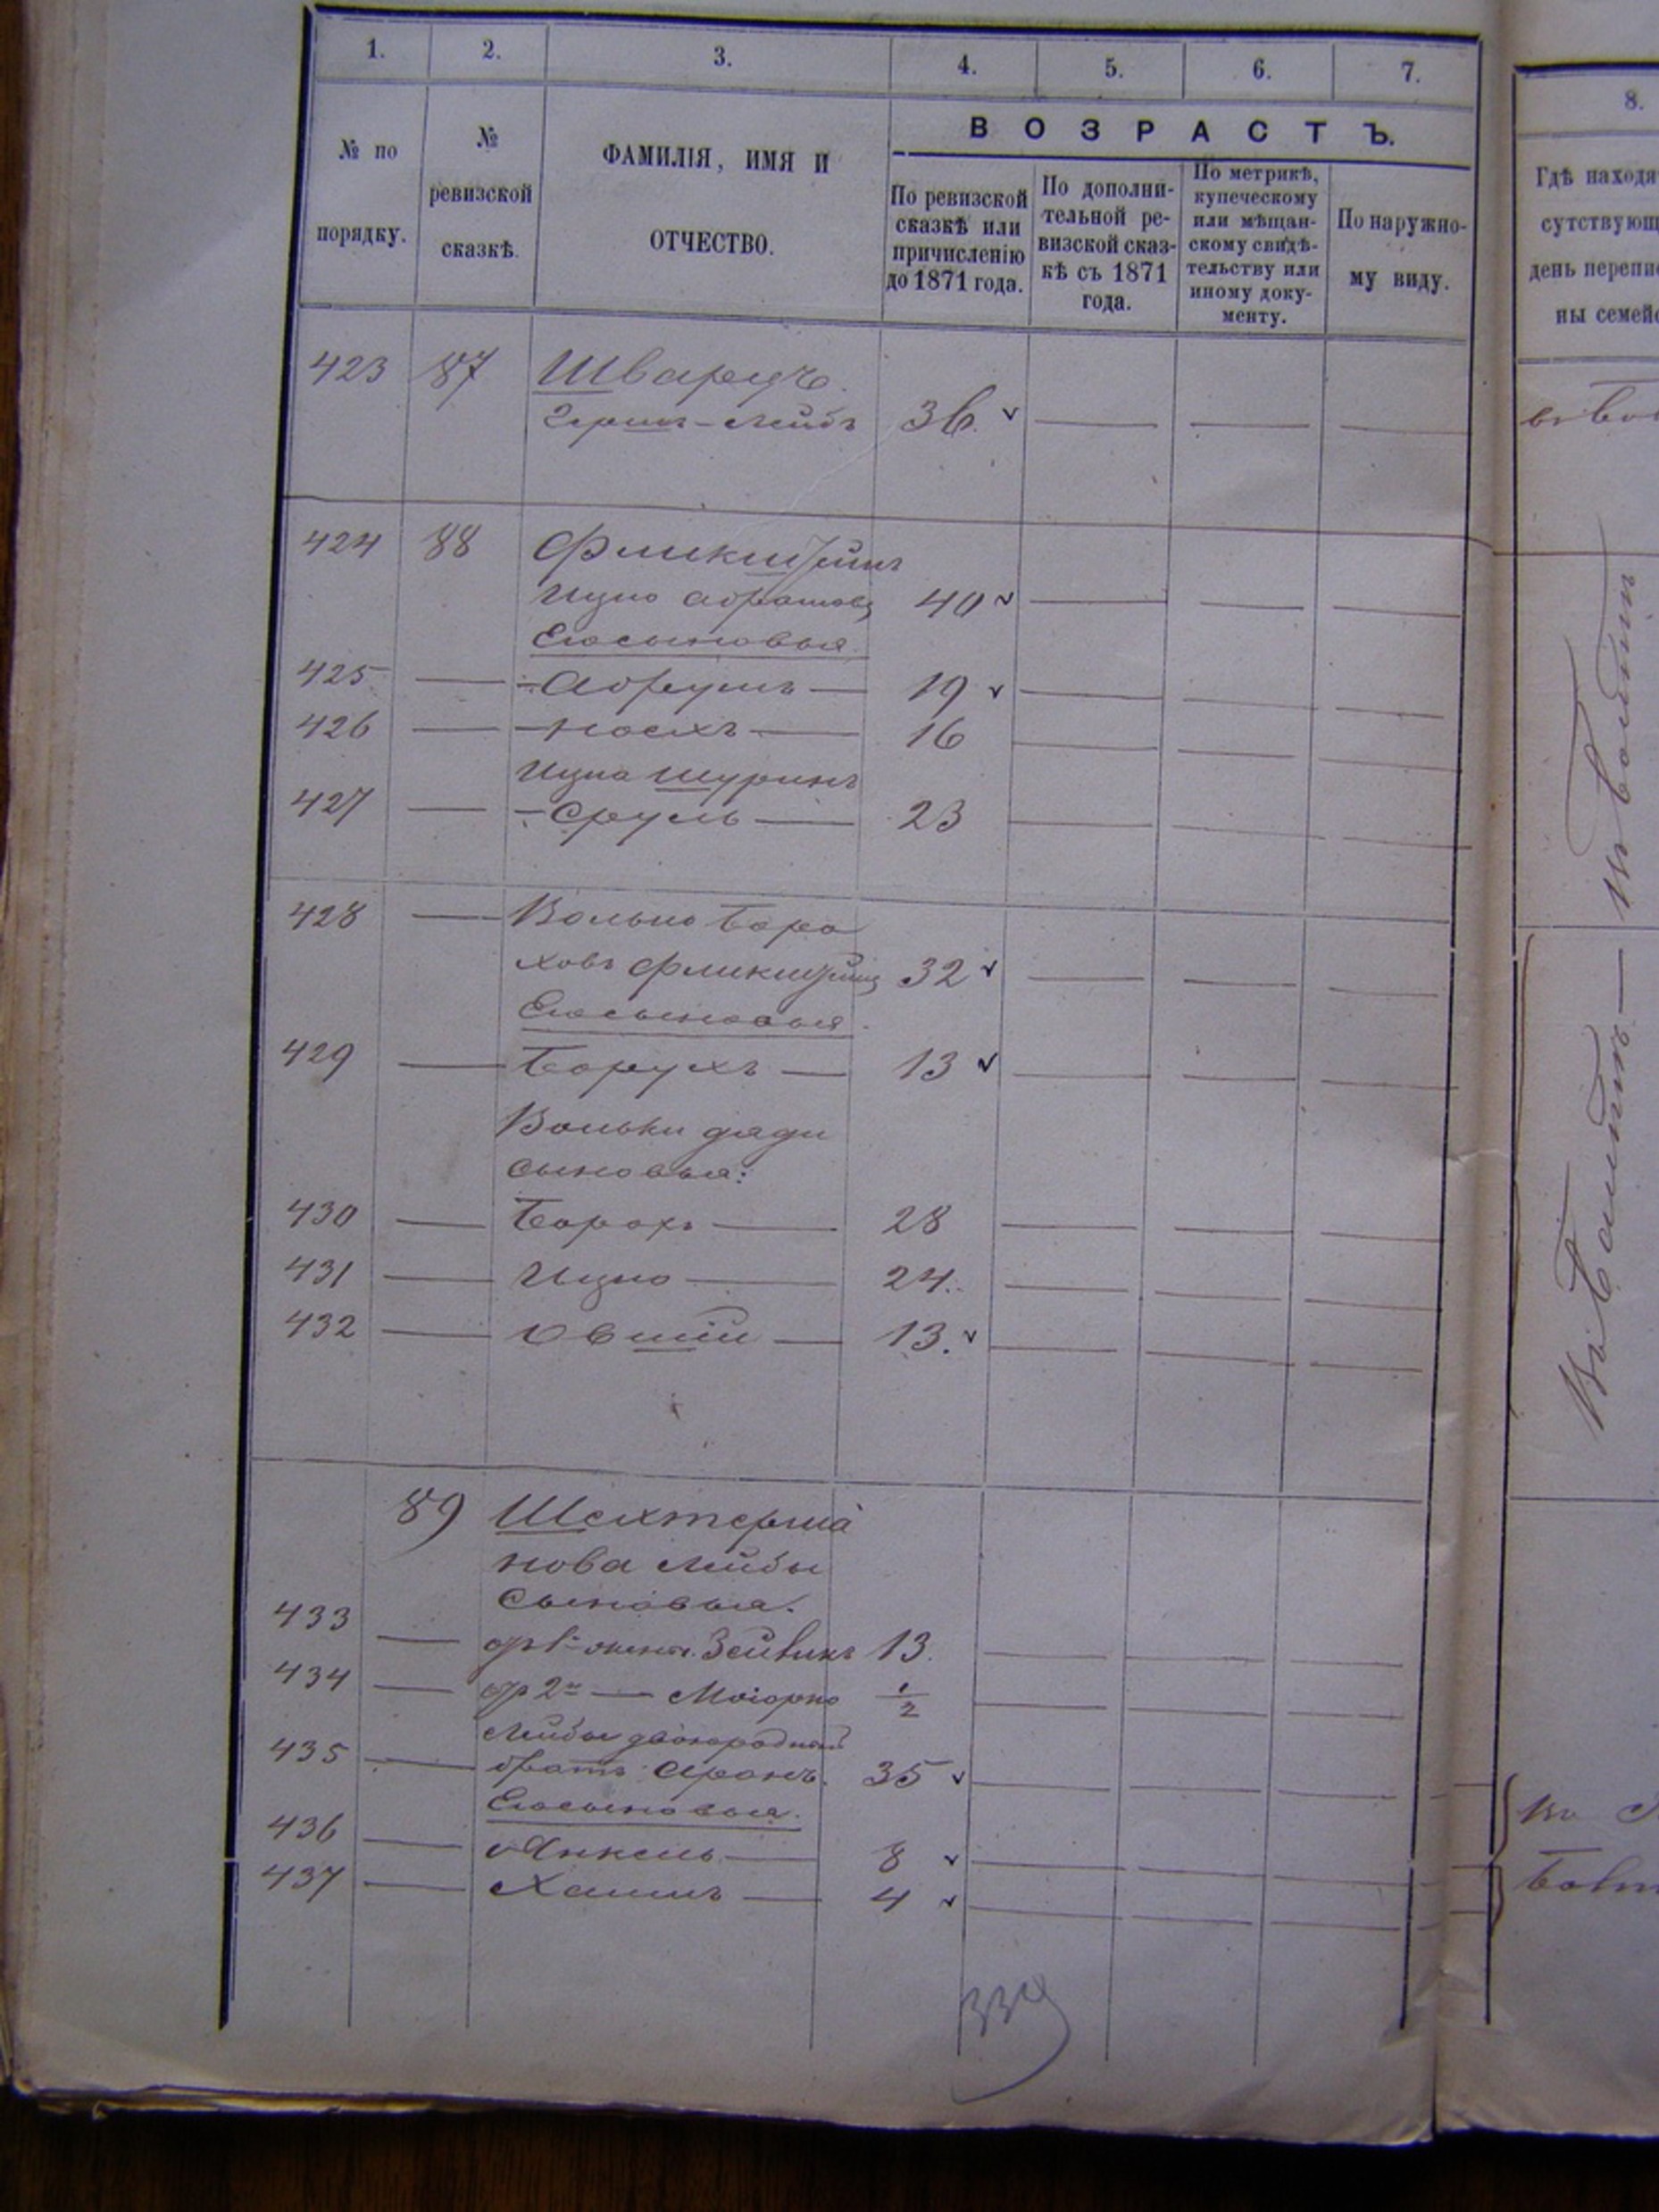 1. 2. 3. 4. 5. 6. 7. 8.
№ по порядку.
№ ревизской сказкѣ.
ФАМИЛІЯ, ИМЯ И ОТЧЕСТВО.
ВОЗРАСТЪ.
По ревизской сказкѣ или причисленію до 1871 года.
По дополнительной ревизской сказкѣ съ 1871 года.
По метрикѣ, купеческому или мѣщанскому свидѣтельству или иному документу.
По наружному виду.
Гдѣ находя
сутствующ
день перепи
ны семей
423 87 Шварцъ.
Герш-Лейбъ 36.
424 88 Фликштейнъ
Ицко Абрамовъ 40
Его сыновья
425 — Абрумъ — 19
426 —Носихъ — 16
Ицка Шуринъ
427 — Сруль — 23
428 — Волько Боро
ховъ Фликштейнъ 32
Его сыновья
429 — Борухъ — 13
Вольки дяди
сыновья:
430 — Борохъ — 28
431 — Ицко — 24.
432 — Овшій — 13.
89 Шехтерма
нова Лейбы
сыновья.
433 — отъ 1й жены Зейвикъ 13.
434 — от 2й — Моіорко 1/2
Лейбы двоюродный
435 — братъ Аронъ. 35
Его сыновья.
436 — Янкель — 8
437 — Хаимъ — 4